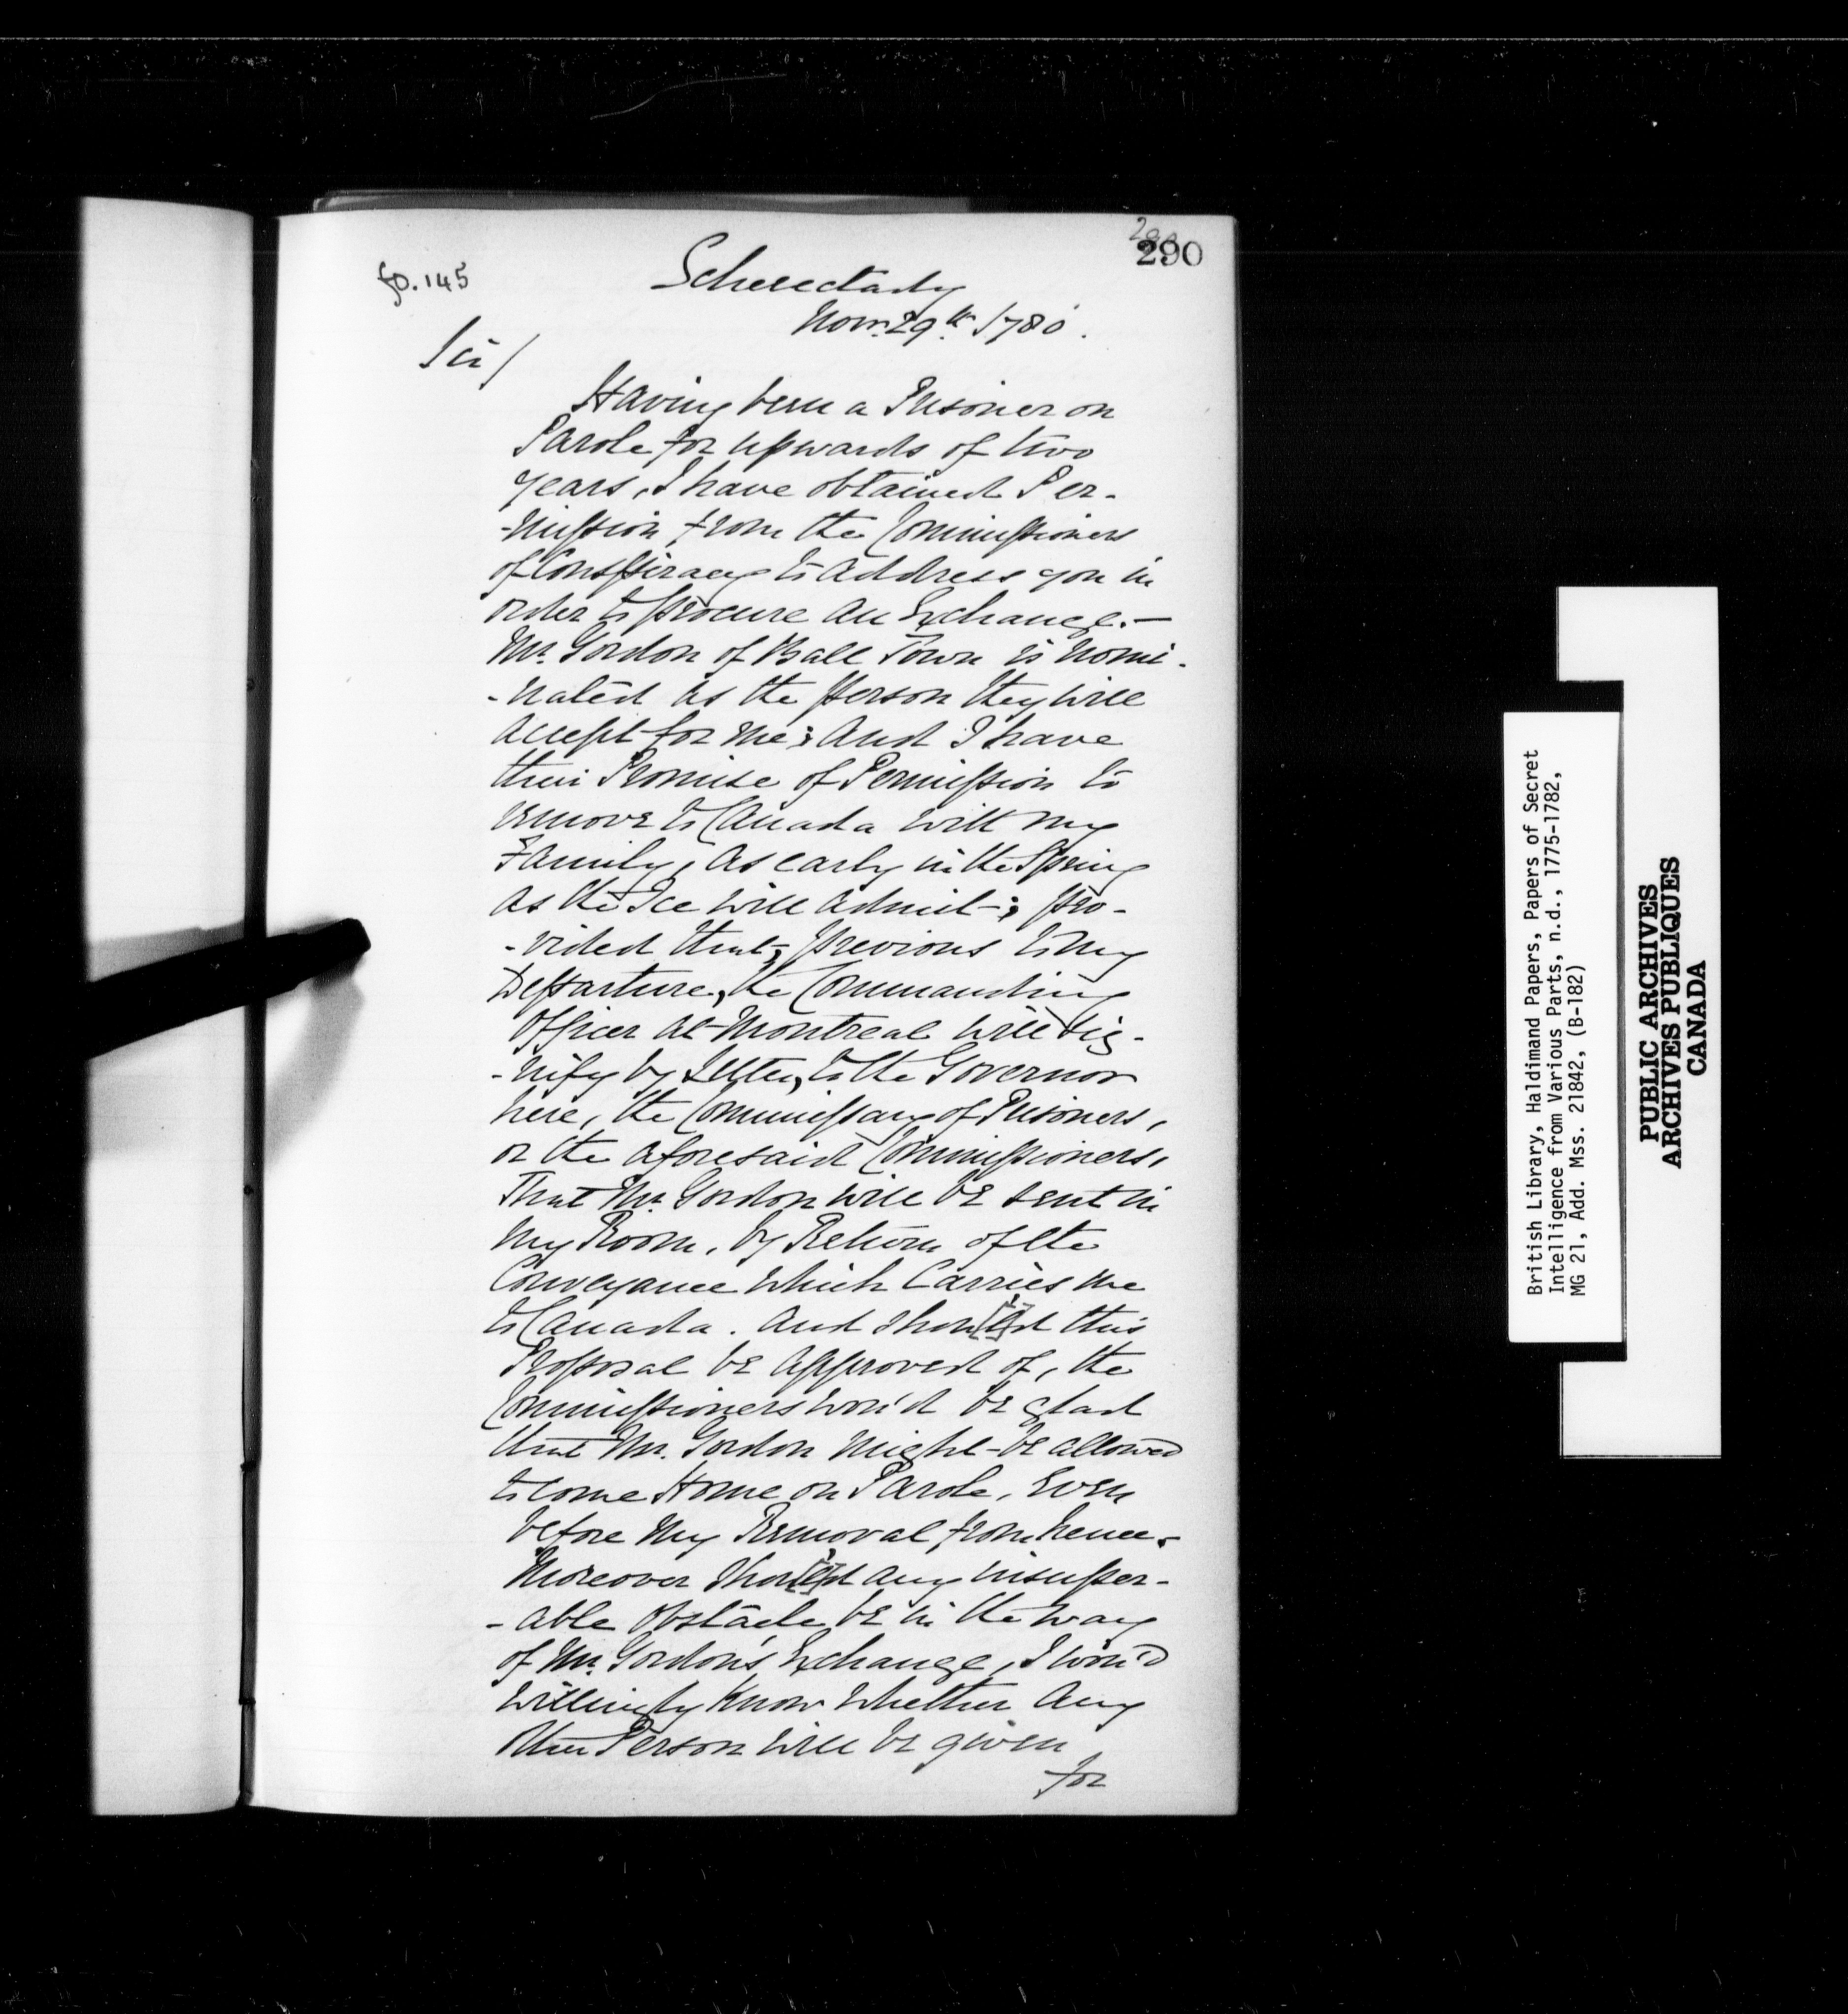 290
fo. 145
Schenectady
Novr. 29th. 1780.
Sir/
Having been a Prisoner on
Parole for upwards of two
years, I have obtained Per-
-mission from the Commissioners
of Conspiracy to address you in
order to procure an Exchange.—
Mr. Gordon of Ball Town is nomi-
-nated as the person they will
accept for me; and I have
their Promise of Permission to
remove to Canada with my
Family, as early in the Spring
as the Ice will admit; pro-
-vided that, previous to my
Departure, the Commanding
Officer at Montreal will sig-
-nify by Letter, to the Governor
here, the Commissary of Prisoners,
or the aforesaid Commissioners,
That Mr. Gordon will be sent in
my Room, by Return of the
Conveyance which Carries me
to Canada. And shou'd this
Proposal be approved of, the
Commissioners wou'd be glad
that Mr. Gordon might be allowed
to come Home on Parole, Even
before my Removal from hence.
Moreover shou'd any insuper-
-able obstacle be in the way
of Mr. Gordon's Exchange, I wou'd
willingly know whether any
other Person will be given
for
British Library, Haldimand Papers, Papers of Secret
Intelligence from Various Parts, n.d., 1775-1782,
MG 21, Add. Mss. 21842, (B-182)
PUBLIC ARCHIVES
ARCHIVES PUBLIQUES
CANADA